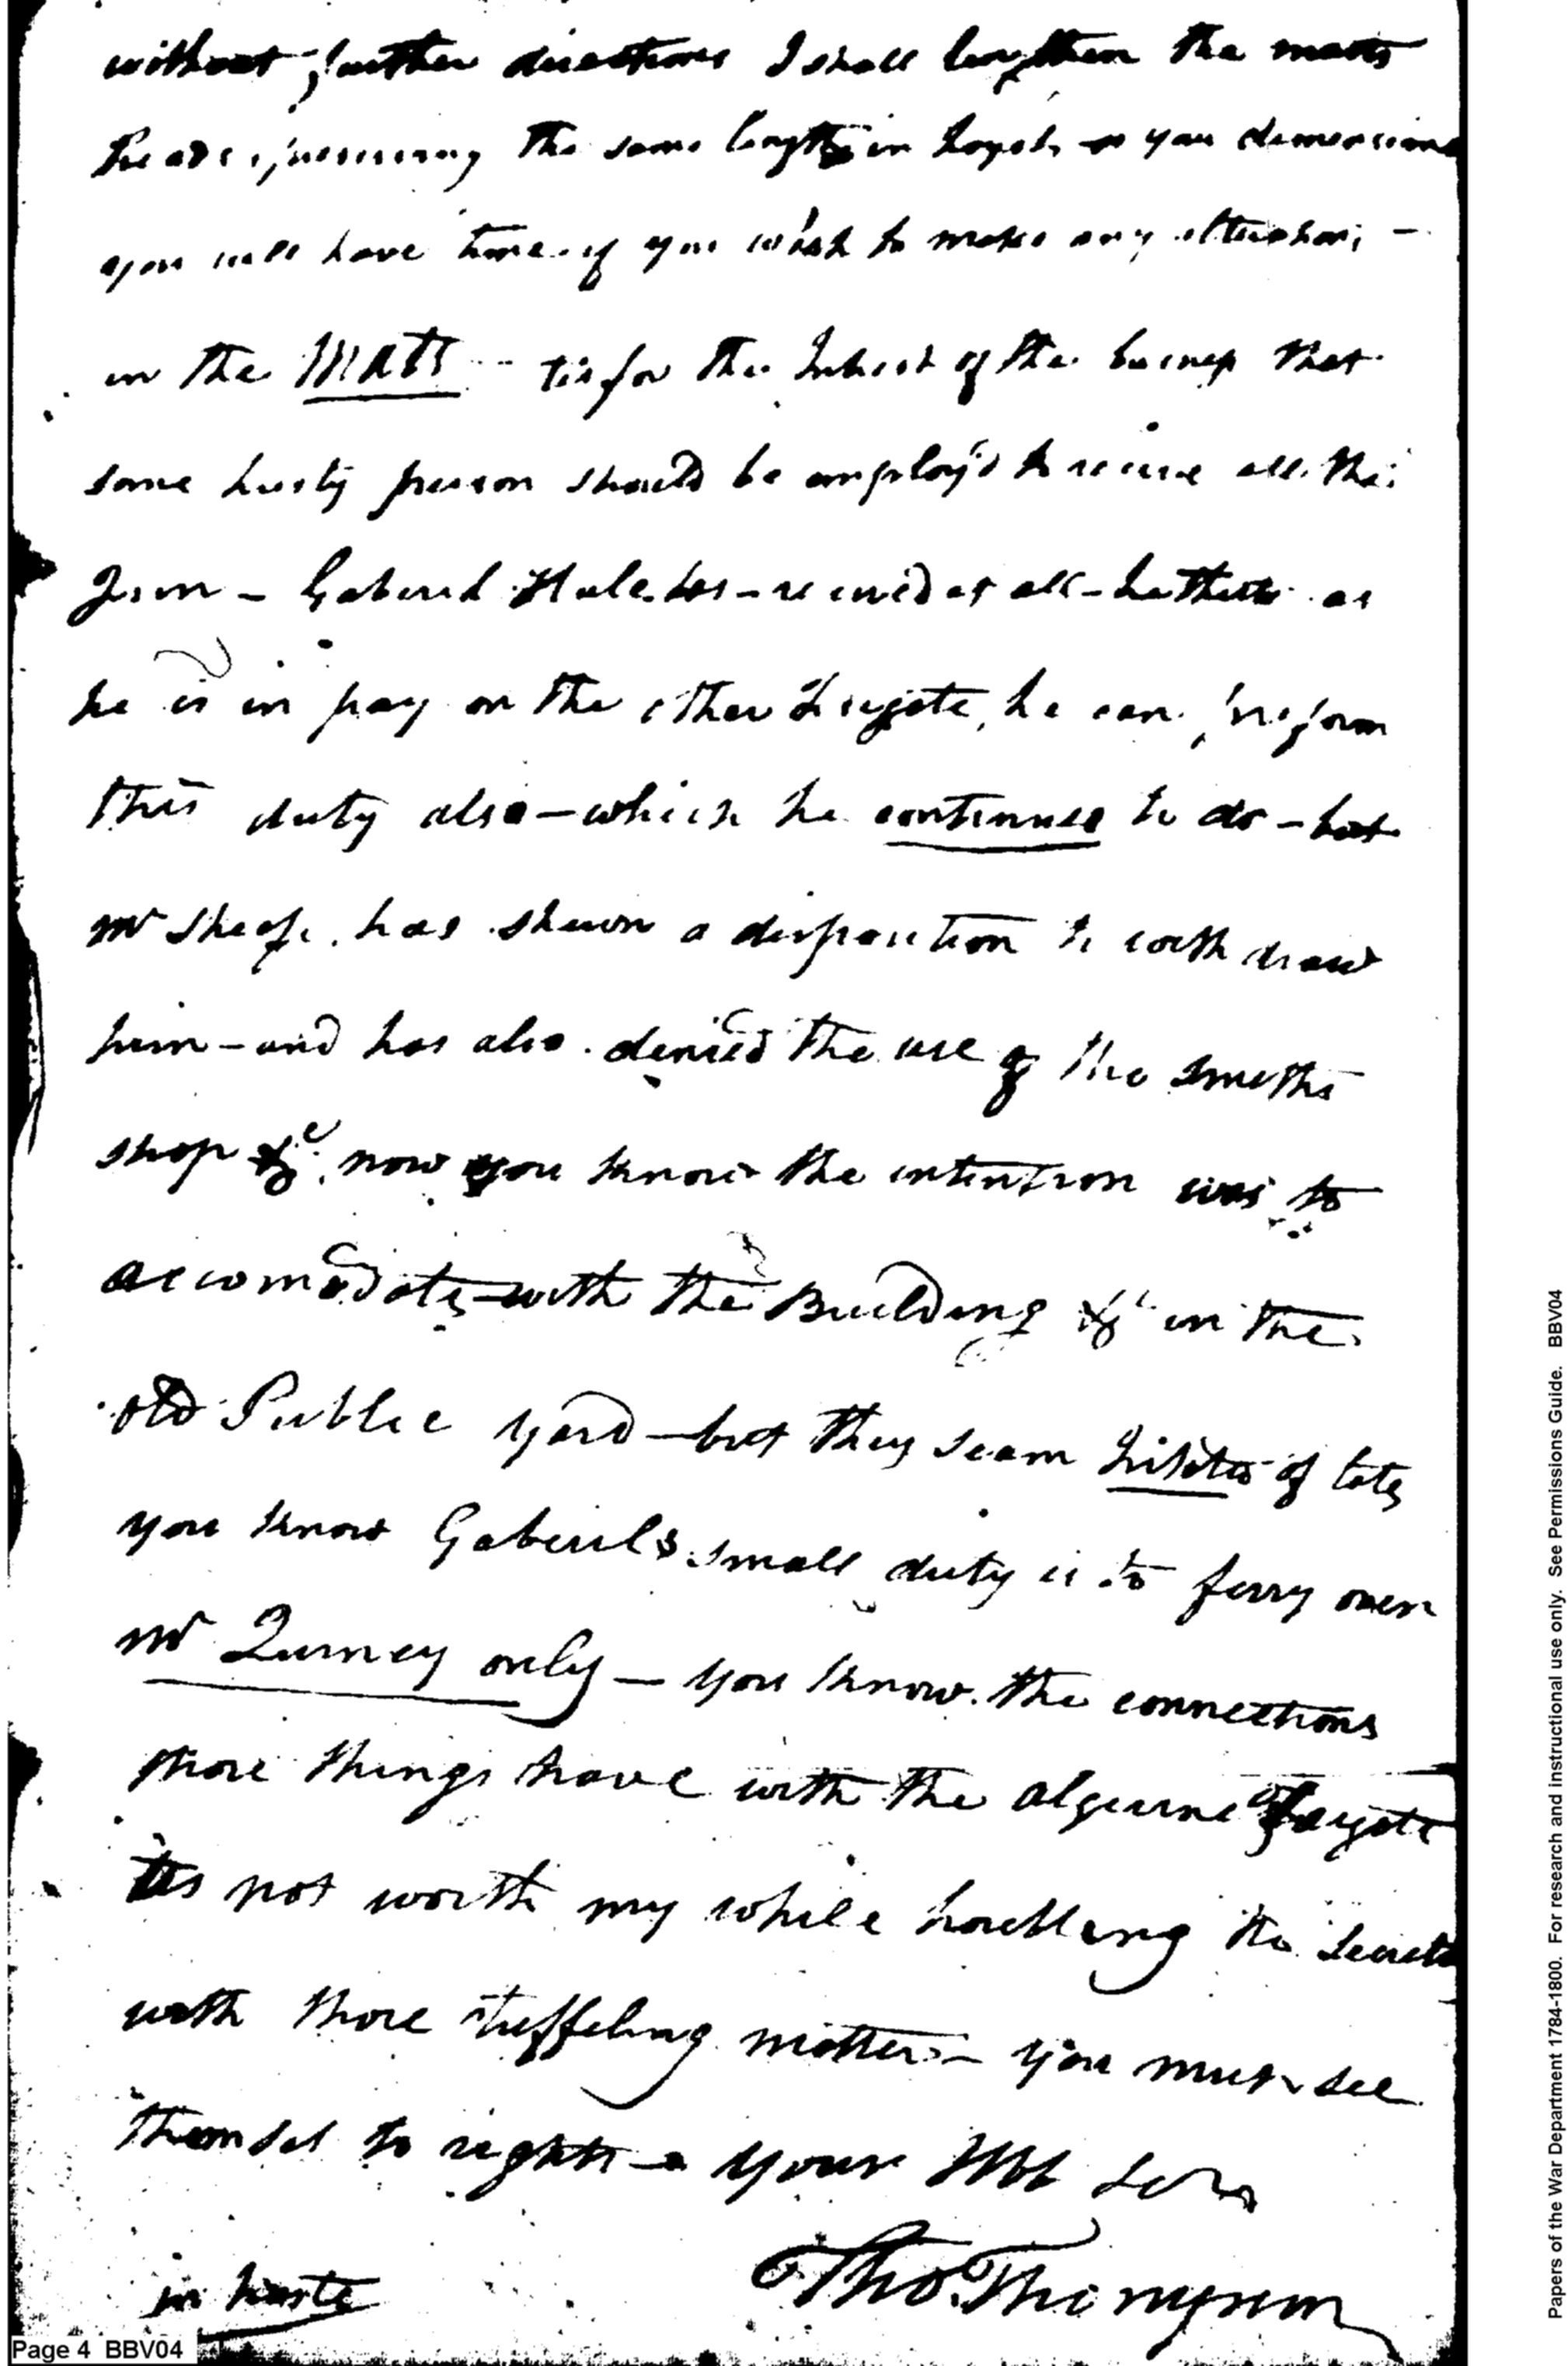 without further directions I shall lengthen the masts
heads preserving the same length in hoyst as you
you will have time if you wish to make any alterations –
in the Masts – tis for the Intrest of the business that
some trusty person should be employ'd to receive all the
Iron – Gabriel Hale has received as yet all as
he is in pay on the other Frigate, he can perform
this duty also – which he continues to do – but
Mr Sheafe has shewn a disposition to withdraw
him – and has also denied the use of the smiths
shop &c. now you know the intention was to
accomodate with the Building &c in the
old Public yard – but they seem of late
you know Gabriels small duty is to ferry over
Mr Turney only – you know the connections
those things have with the algerine frigate
tis not worth my while troubling the Secretary
with those matters – you must see
them set to rights – your Hbl Ser
Tho. Thompson
in haste
Page 4 BBV04
Papers of the War Department 1784-1800. For research and instructional use only. See Permissions Guide. BBV04